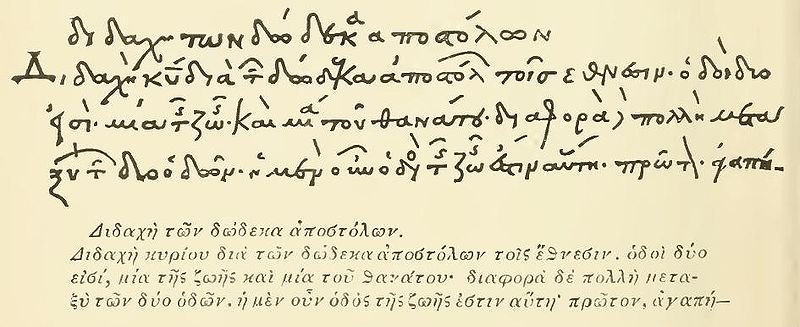 διδαχὴ τῶν δώδεκα ἀποστόλων
Διδαχὴ κῡ διὰ τ̑ δώδεκα ἀποστόλ τοῖς ἔθνεσιν· ὁδοὶ δύο
εἰσί· μία τ̑ς ζω̑ς· καὶ μία τοῦ θανάτου· διαφορὰ) πολλὴ μετα
ξὺ τ̑ δύο ὁδῶν· ἡ μὲν οὖν ὁδὸ τ̑ς ζω̑ς ἐστιν αὕτη· πρῶτ· ἀγαπή–
Διδαχὴ τῶν δώδεκα ἀποστόλων.
Διδαχὴ κυρίου διὰ τῶν δώδεκα ἀποστόλων τοῖς ἔθνεσιν. ὁδοὶ δύο
εἰσί, μία τῆς ζωῆς καὶ μία τοῦ θανάτου· διαφορὰ δὲ πολλὴ μετα-
ξὺ τῶν δύο ὁδῶν. ἡ μὲν οὖν ὁδὸς τῆς ζωῆς ἐστιν αὕτη· πρῶτον, ἀγαπή—